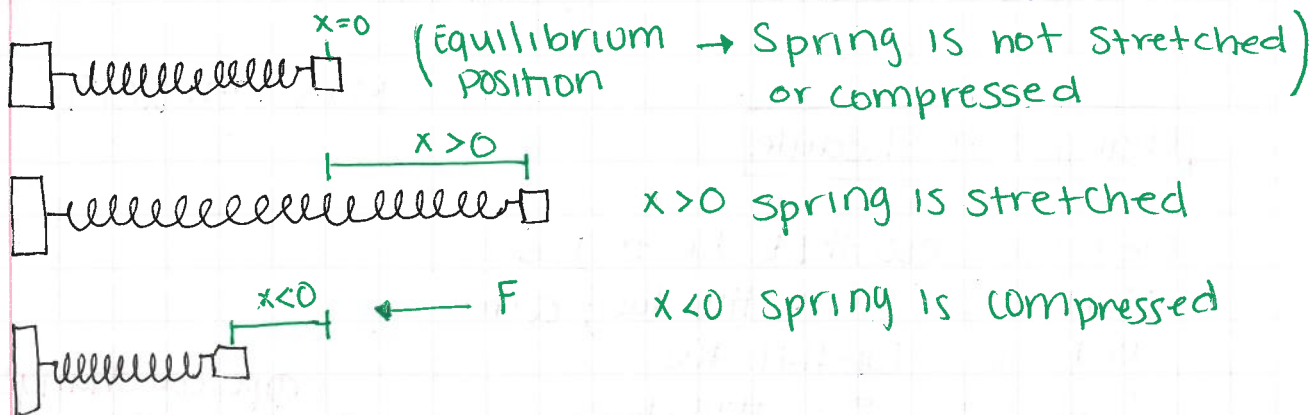 x=0
(Equilibrium → Spring is not stretched)
position or compressed
x>0
x>0 spring is stretched
x<0 F x<0 spring is compressed